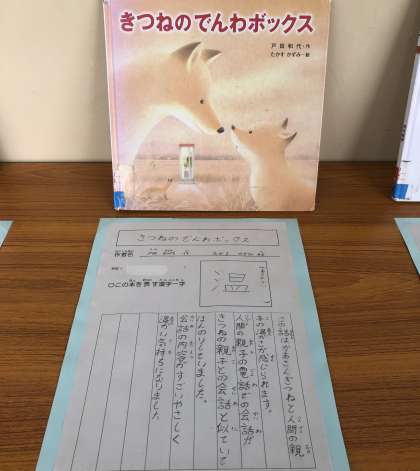 きつねのでんわボックス
戸田和代・作
たかすかずみ・絵
きつねのでんわボックス
作者名
〇この本を表す漢字一字
温
この話はかあさんぎつねと人間の親
子の温かさが感じられます。
人間の親子の電話での会話が
きつねの親子との会話と似ていて
ほんのりしていました。
会話の内容がすごいやさしく
温かい気持ちになりました